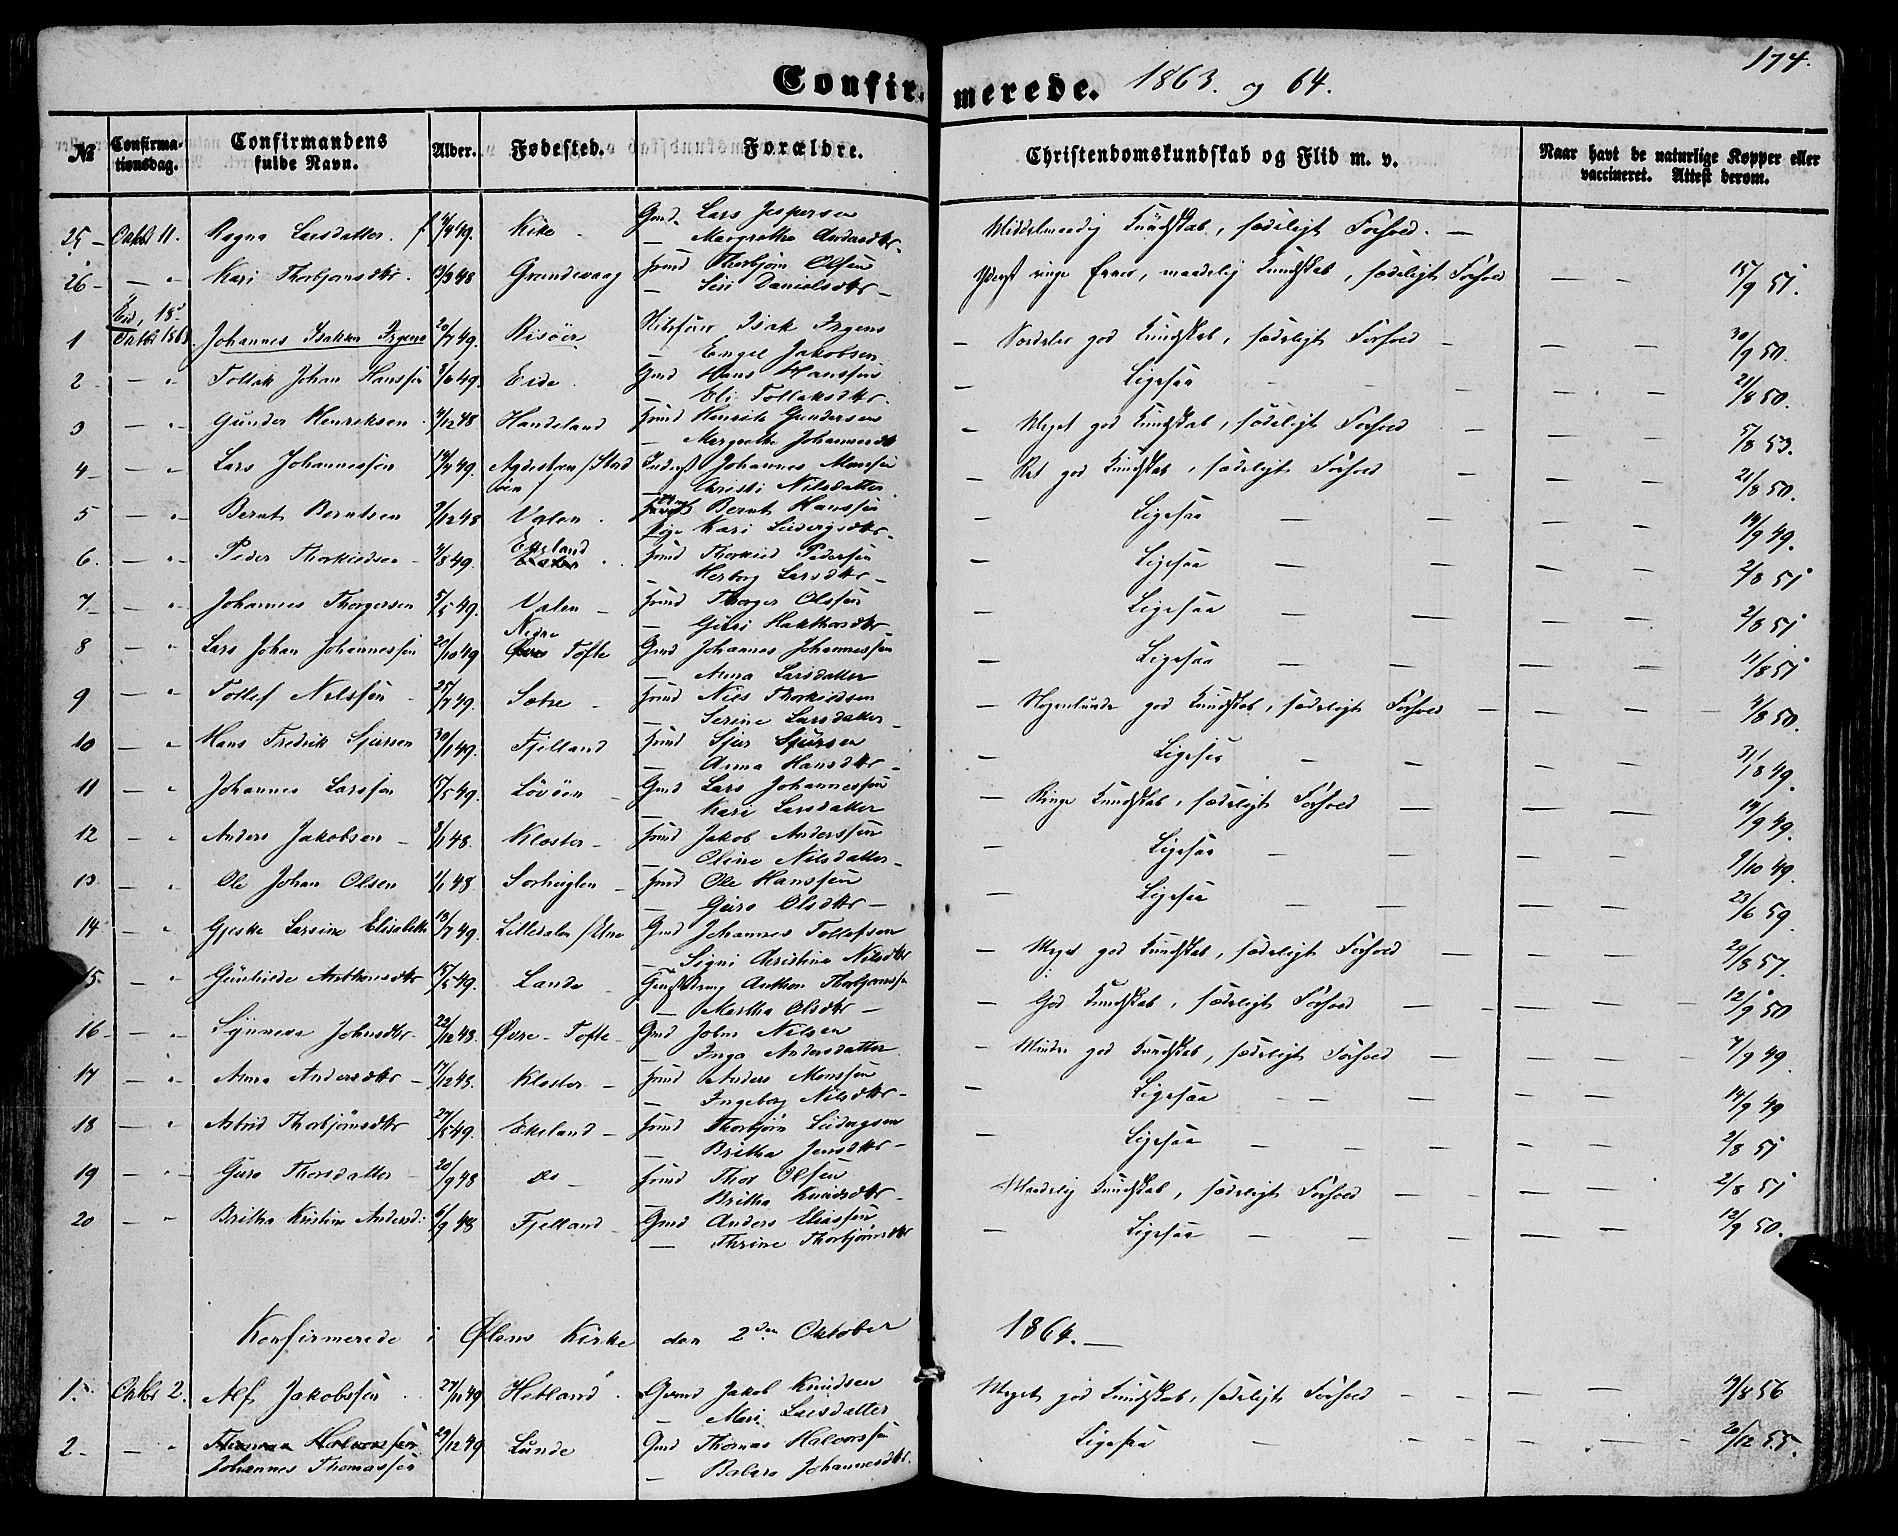 174.
Confirmerede. 1863. og 64.
№ Confirmationsdag. Confirmandens fulde Navn. Alder. Fødested. Forældre. Christendomskundskab og Flid m. v. Naar havt de naturlige Kopper eller vaccineret. Attest derom.
25 Oktb 11. Ragna Larsdatter 49. Gmd. Lars Jespersen
— Margrethe Andersdtr. Middelmaadig Kundskab, sædeligt Forhold. —
26 — " Kari Thorbjørnsdtr. 13/9 48 Grandevaag Huusmd Thorbjørn Olsen
— Siri Danielsdtr — ringe Evner, maadelig Kundskab, sædeligt Forhold — — 15/9 51.
1 Oktb 1863. Johannes Isaksen Irgens 20/7 49. Risøen Isak Irgens
— Engel Jakobsen — Særdeles god Kundskab, sædeligt Forhold — — — 30/9 50.
2 — " Tollak Johan Hanssen 49. Eide. Gmd Hans Hanssen
— Eli Tollaksdtr. — Ligesaa — — — — 21/8 50.
3 — " Gunder Henriksen 4/12 48 Handeland Huusmd Henrik Gundersen
— Margrethe Johannesdtr — Meget god Kundskab, sædeligt Forhold — — — 5/8 53.
4 — " Lars Johannessen 49. Johannes Monsen
— Christi Nilsdatter — Ret god Kundskab, sædeligt Forhold — — — 21/8 50.
5 — " Bernt Berntsen /12 48 Valen. Bernt Hanssen
Kari Sjovergsdtr. — Ligesaa — — — — 14/9 49.
6. — " Peder Thorkildsen 4/8 49. Ekeland Huusmd Thorkild Pedersen
— Herborg Larsdtr — — Ligesaa — — — — 2/8 51
7 — " Johannes Thorgersen 5/5 49. Valen — Huusmd Thorger Olssen
— Guri Haktorsdtr — Ligesaa — — — — 2/8 51
8 — " Lars Johan Johannessen 21/10 49 Nedre Tofte Gmd Johannes Johannessen
— Anna Larsdatter — Ligesaa — — — — 11/8 51
9 — " Tollef Nilssen 25/7 49. Sætre — Huusmd Nils Thorkildsen
— Serine Larsdatter — Nogenlunde god Kundskab, sædeligt Forhold — — — 4/8 50.
10 — " Hans Fredrik Sjursen 30/1 49. Fjelland Huusmd Sjur Sjursen
— Anna Hansdtr — — Ligesaa — — — — 31/8 49.
11 — " Johannes Larssen 17/5 49. Løvøen — Gmd Lars Johannessen
— Kari Larsdatter — Ringe Kundskab, sædeligt Forhold — — — 14/9 49.
12 — " Anders Jakobsen — 8/1 48. Kloster — Huusmd Jakob Anderssen
— Oline Nilsdatter — — Ligesaa — — — — 9/10 49.
13 — " Ole Johan Olsen 1/1 48. Sørhuglen — Huusmd Ole Hanssen
— Guro Olsdtr — — Ligesaa — — — — 23/6 59.
14 — " Gjeske Larsine Elisabeth 13/7 49. Lilledalen Gmd Johannes Tollefsen
— Signi Christina Nilsdtr — Meget god Kundskab, sædeligt Forhold — — — 29/8 57.
15. — " Gunhilde Anthonsdtr 18/5 49. Lande — Anthon Thorbjørnssen
— Martha Olsdtr — — God Kundskab, sædeligt Forhold — — — 12/9 50
16 — " Synneva Johnsdtr — 22/12 48. Øvre Tofte — Gmd John Nilsen
— Inga Andersdatter — Mindre god Kundskab, sædeligt Forhold — — — 7/9 49.
17 — " Anna Andersdtr — 17/12 48. Kloster — Huusmd Anders Monssen
— Ingeborg Nilsdtr — — Ligesaa — — — — 14/9 49
18 — " Astrid Thorbjørnsdtr 27/5 49. Ekeland — Huusmd Thorbjørn
— Britha Jensdtr — — Ligesaa — — — — 2/8 51
19 — " Guro Thorsdatter 20/9 48 do — Huusmd Thor Olsen
— Britha Knudsdtr — Maadelig Kundskab, sædeligt Forhold — — — 2/8 51
20 — " Britha Kristine Andersd: 6/9 48 Fjelland — Gmd Anders Eliassen
— Thrine Thorbjørnsdtr — Ligesaa — — — — 12/9 50.
Konfirmerede i Ølens Kirke den 2den Oktober 1864. —
1. Oktbr 2. Alf Jakobssen 27/11 49 Hetland Gmd Jakob Knudsen
— Mari Larsdatter Meget god Kundskab, sædeligt Forhold — — — 9/8 56
2 — " Thomas Halvorssen 29/12 49 Lunde Gmd Thomas Halvorssen
Johannes Thomassen — Barbara Johannesdtr. Ligesaa — — — — 20/12 55.